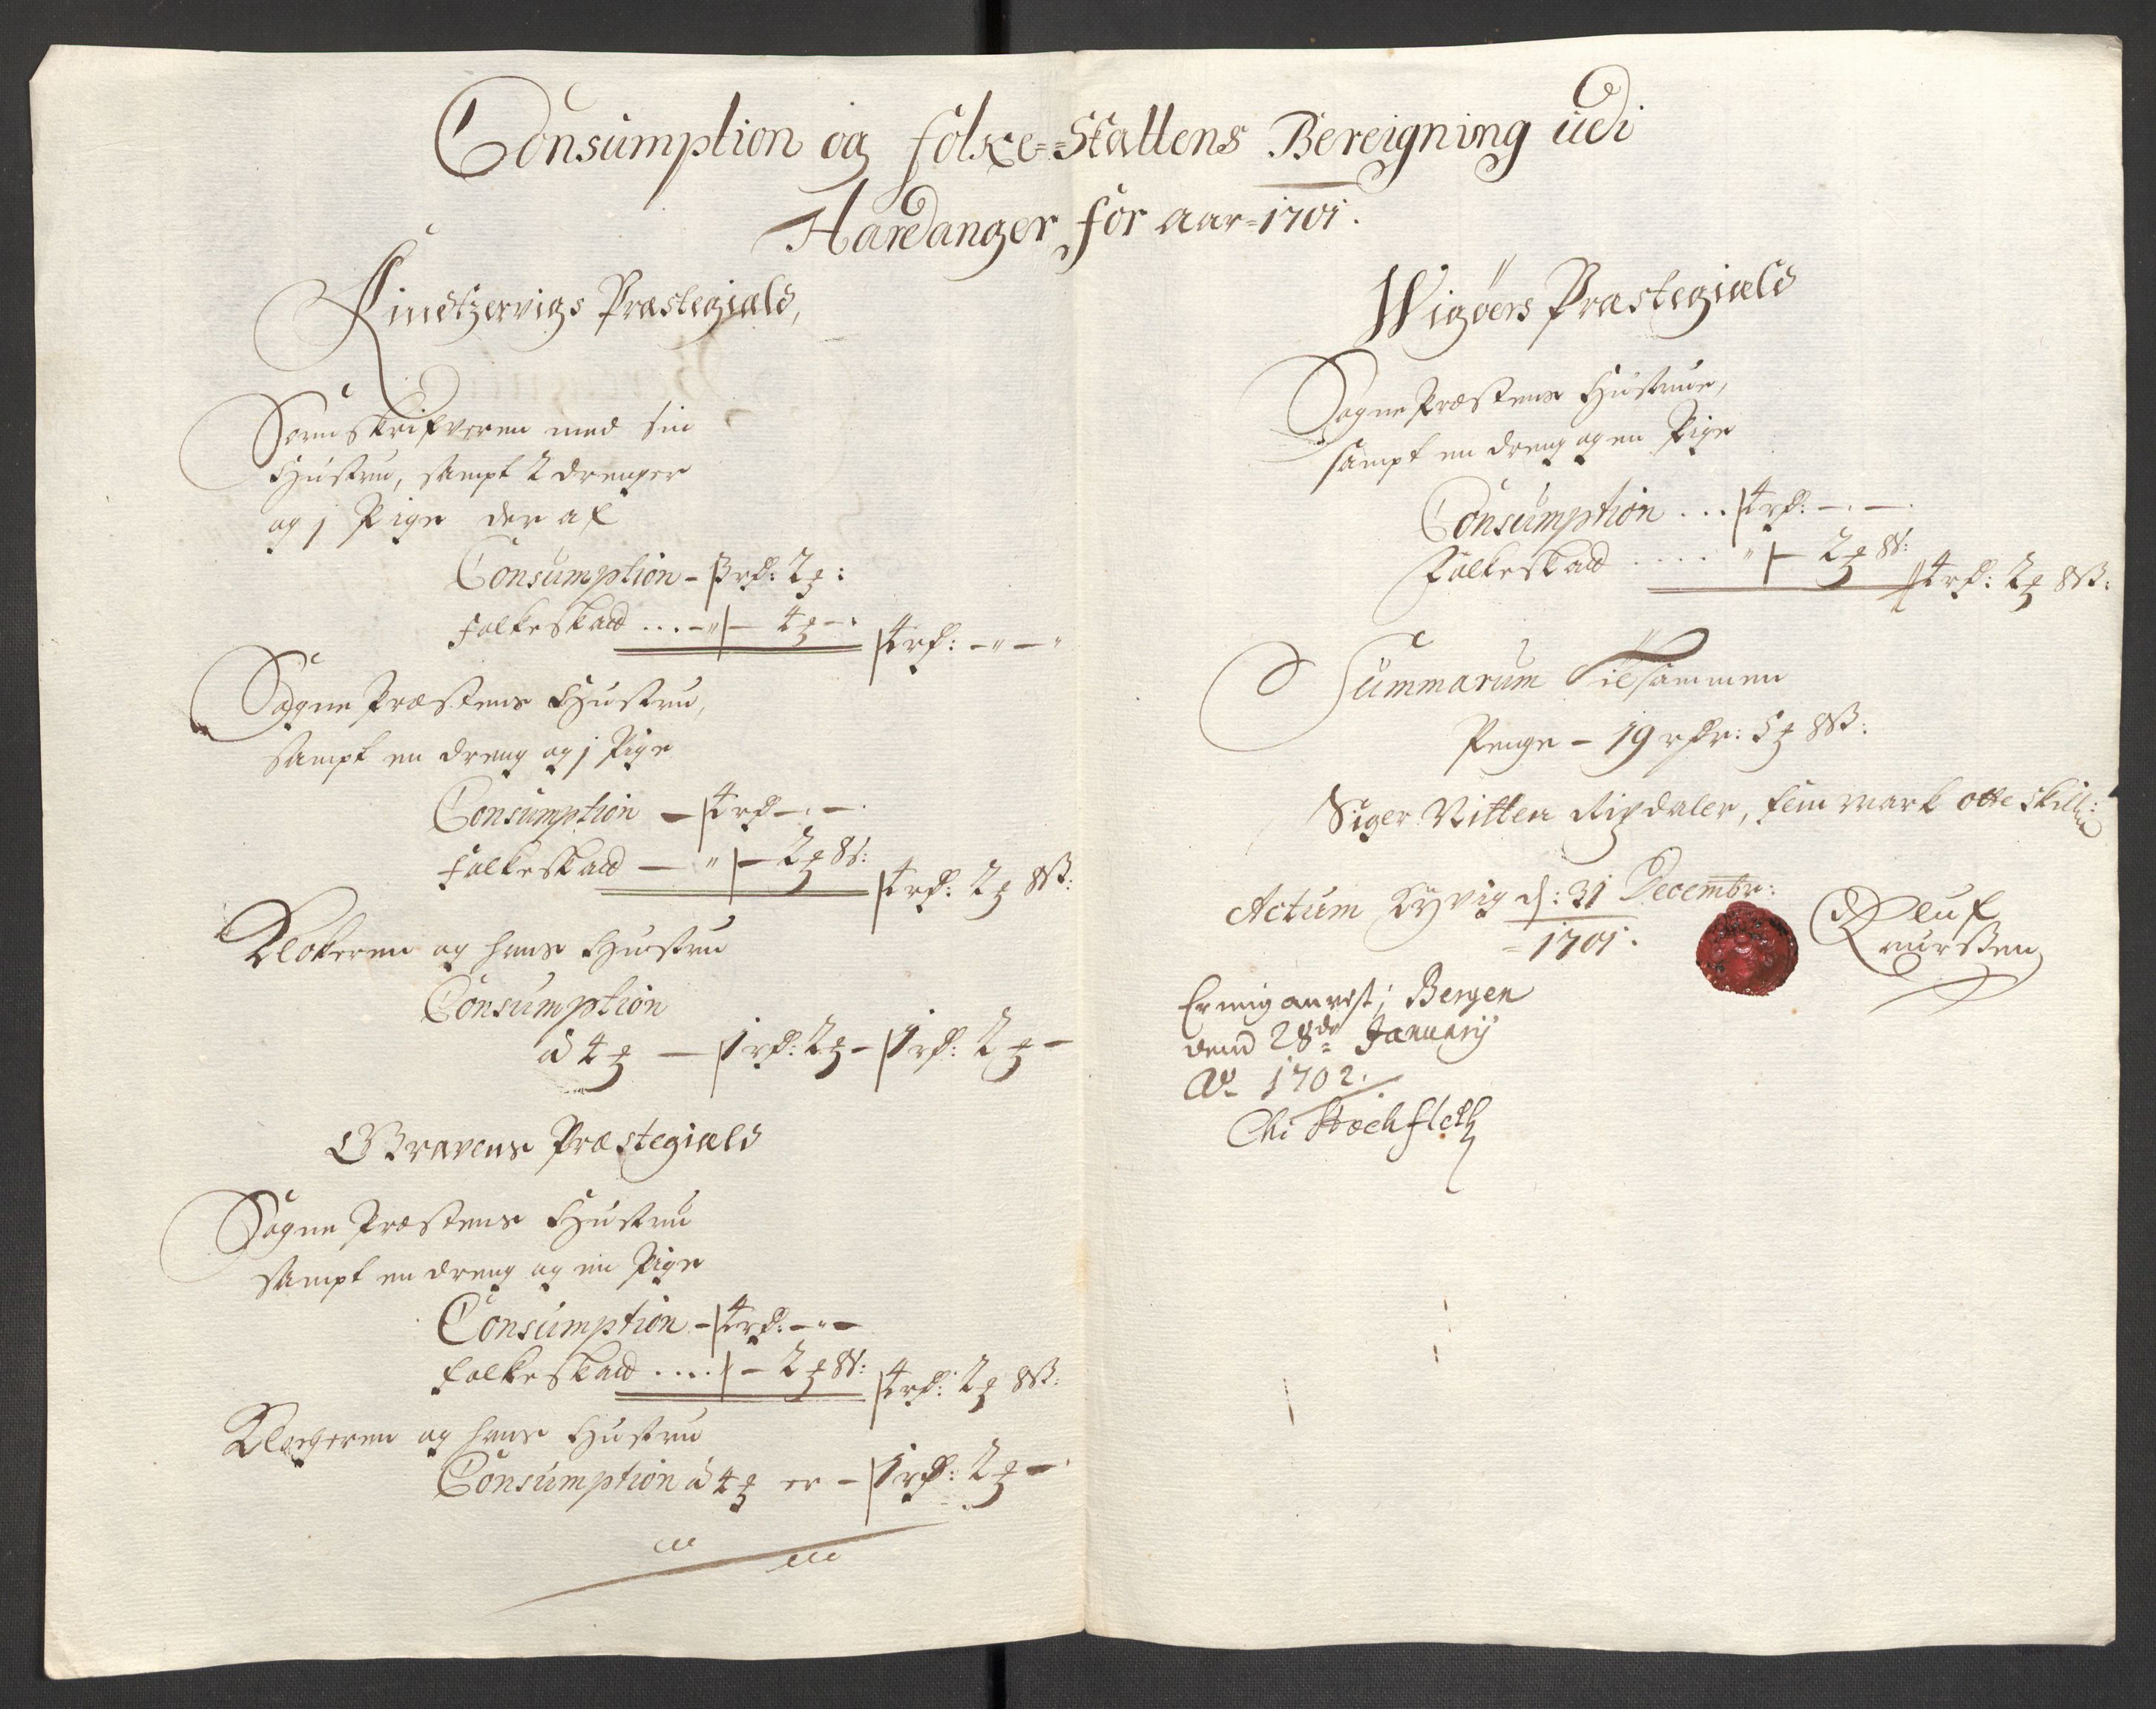 Consumption og folke-Skattens Bereigning udi
Hardanger for aar 1701.
Kindtzervigs Præstegiæld,
Sorenskrifveren med sin
Hustru, sampt 2 drenger
og 1 Pige der af
Consumption - 3 rd: 2 ꝑ:
folkeskatt ... - " - 4 ꝑ -
4 rd: - " - "
Sogne Præstens Hustru,
sampt en dreng og 1 Pige
Consumption - 4 rd - . - .
folkeskatt - " - 2 ꝑ 8 s:
4 rd: 2 ꝑ 8 ß:
Klokeren og hans Hustru
Consumption
à 4 ꝑ - 1 rd: 2 ꝑ - 1 rd: 2 ꝑ -
Gravens Præstegiæld
Sogne Præstens Hustru
sampt en dreng og en Pige
Consumption - 4 rd: - " -
folkeskatt .... - 2 ꝑ 8 s:
4 rd: 2 ꝑ 8 ß:
Klocheren og hans Hustru
Consumption à 4 ꝑ er - 1 rd: 2 ꝑ -
Wigöers Præstegiæld
Sogne Præstens Hustrue,
sampt en dreng og en Pige
Consumption ... 4 rd: - . - .
Folkeskatt .... " - 2 ꝑ 8 s:
4 rd: 2 ꝑ 8 ß:
Summarum Tilsammen
Penge - 19 rdr: 5 ꝑ 8 ß:
Siger Nitten Rixdaler, fem mark otte skill:
Actum d: 31 Decembr:
1701.
Oluf
Laurssen
Er mig anvist; Bergen
dend 28de January
Ao 1702.
Chr Stockfleth